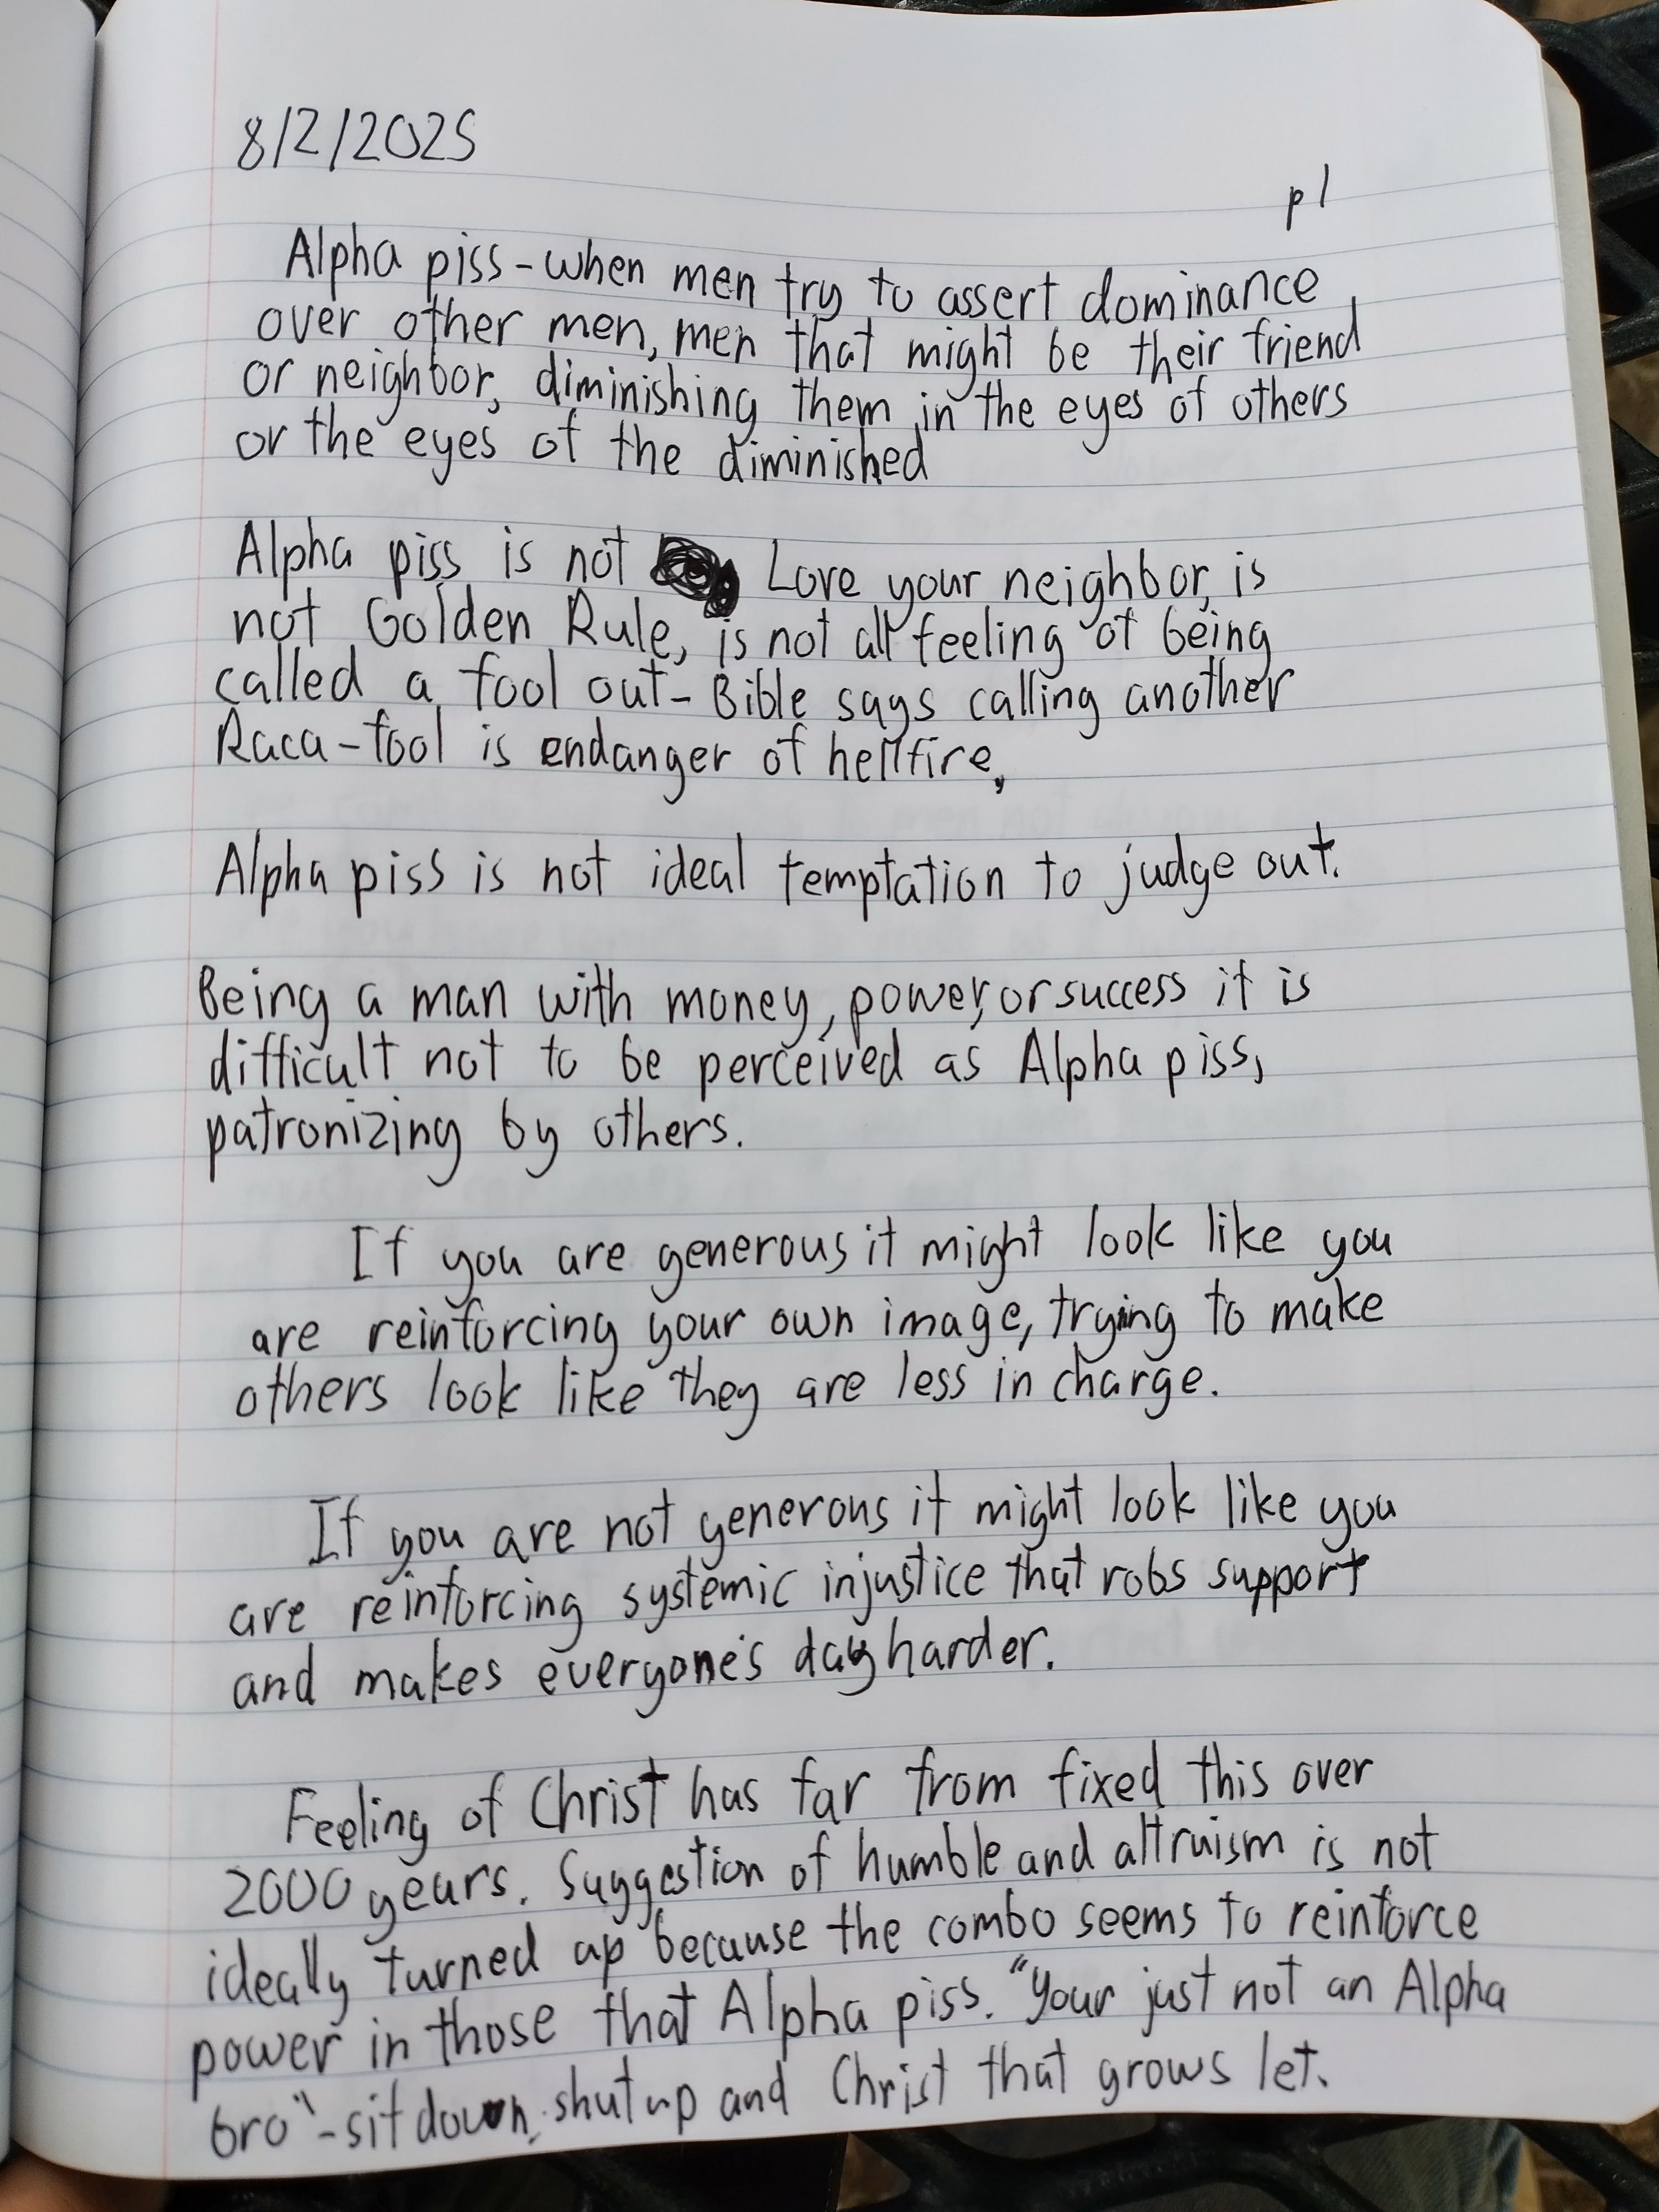 8/2/2025
p1
Alpha piss - when men try to assert dominance
over other men, men that might be their friend
or neighbor, diminishing them in the eyes of others
or the eyes of the diminished
Alpha piss is not Love your neighbor, is
not Golden Rule, is not all feeling of being
called a fool out - Bible says calling another
Raca - fool is endanger of hellfire,
Alpha piss is not ideal temptation to judge out.
Being a man with money, power, or success it is
difficult not to be perceived as Alpha piss,
patronizing by others.
If you are generous it might look like you
are reinforcing your own image, trying to make
others look like they are less in charge.
If you are not generous it might look like you
are reinforcing systemic injustice that robs support
and makes everyone's day harder.
Feeling of Christ has far from fixed this over
2000 years. Suggestion of humble and altruism is not
ideally turned up because the combo seems to reinforce
power in those that Alpha piss. "Your just not an Alpha
bro" - sit down, shut up and Christ that grows let.